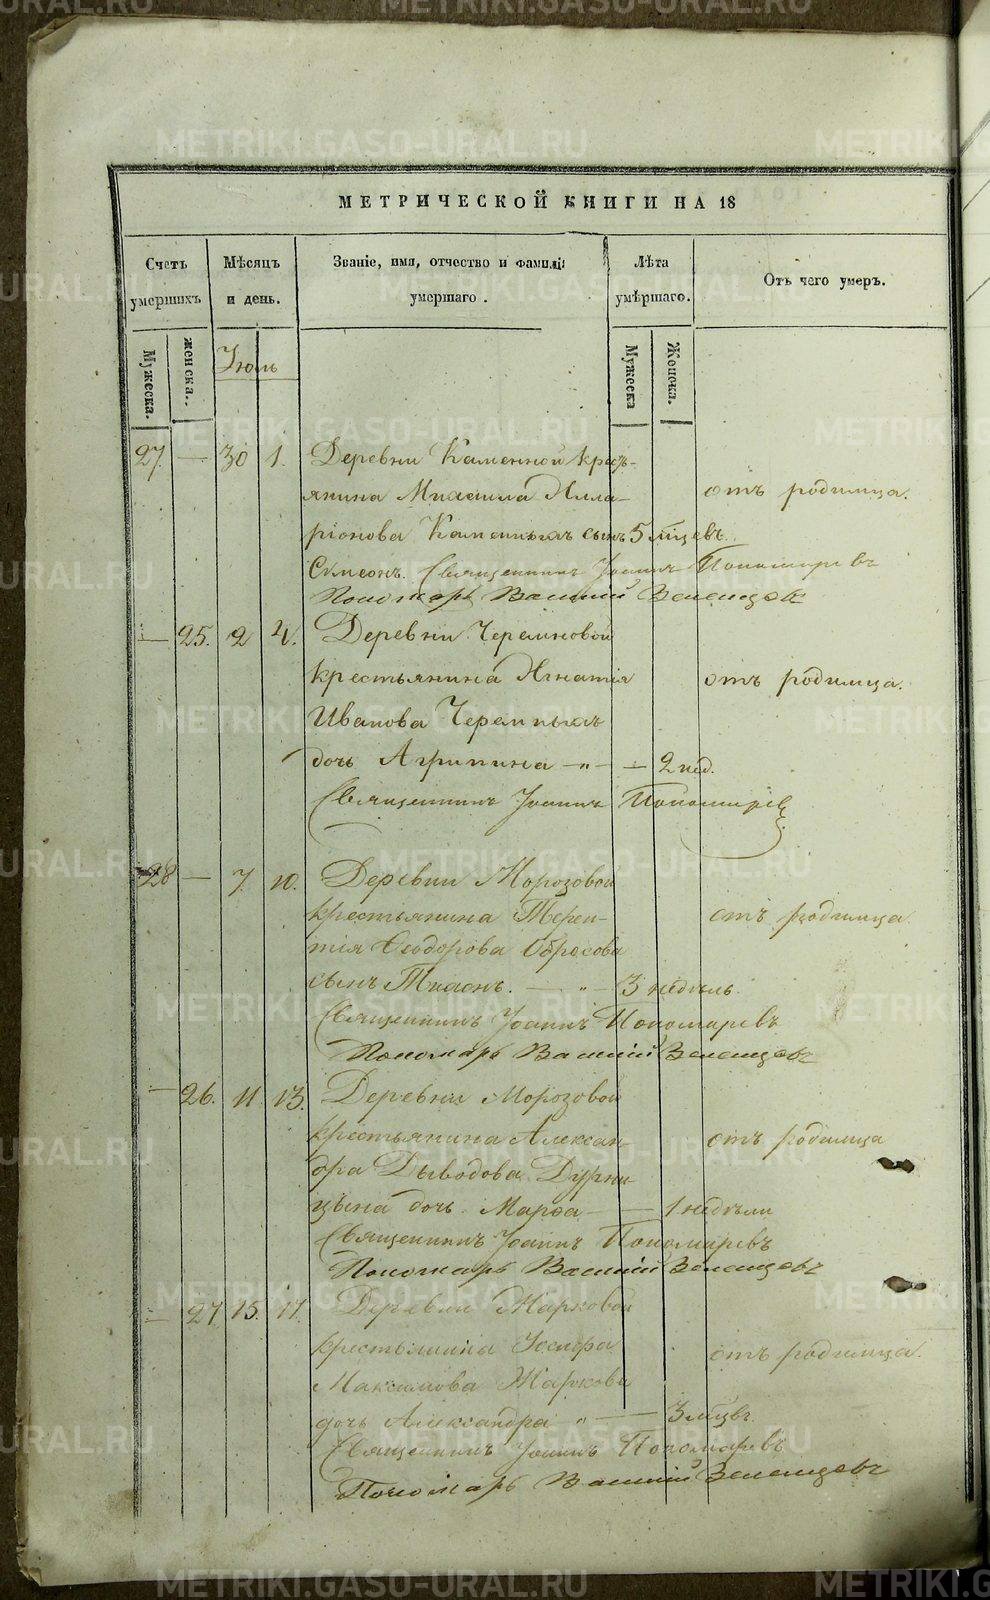 МЕТРИЧЕСКОЙ КНИГИ НА 18
Счетъ умершихъ
Мѣсяцъ и день.
Званіе, имя, отчество и фамилія умершаго.
Лѣта умѣршаго.
Отъ чего умеръ.
Мужеска.
женска.
Мужеска
Женска.
Іюль
27. — 30 1. Деревни Каменной кресть-
янина Михаила Илла- отъ родимца.
ріонова Каменныхъ сынъ 5 мѣцевъ.
Симеонъ. Священникъ Іоаннъ Пономаревъ
Пономарь Василій Зеленцовъ
— 25. 2 4. Деревни Черемновой
крестьянина Игнатія отъ родимца.
Иванова Черемныхъ
дочь Агрипина —„— — 2 нед.
Священникъ Іоаннъ Пономаревъ
28 — 7 10. Деревни Морозовой
крестьянина Терен- отъ родимца.
тія Ѳеодорова Обросова
сынъ Тихонъ. — „ — 3 недѣль.
Священникъ Іоаннъ Пономаревъ
Пономарь Василій Зеленцовъ
— 26. 11 13. Деревни Морозовой
крестьянина Алексан- отъ родимца
дра Давыдова
дочь Марѳа — — 1 недѣли
Священникъ Іоаннъ Пономаревъ
Пономарь Василій Зеленцовъ
— 27 15. 17. Деревни Марковой
крестьянина Іосифа отъ родимца.
Максимова Маркова
дочь Александра „ — 3 мѣцвъ.
Священникъ Іоаннъ Пономаревъ
Пономарь Василій Зеленцовъ
METRIKI.GASO-URAL.RU